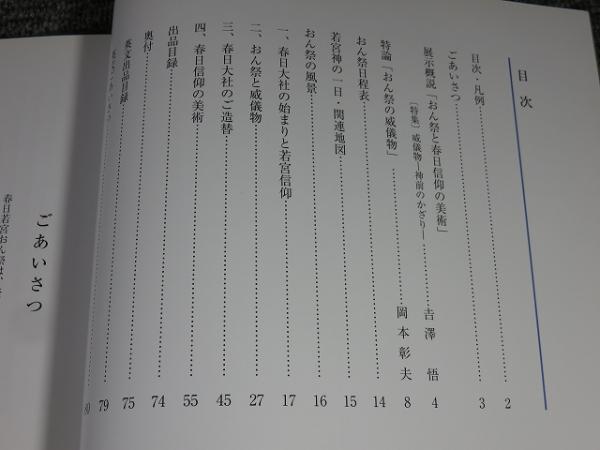 目次
目次・凡例 2
ごあいさつ 3
展示概説「おん祭と春日信仰の美術」
〔特集〕威儀物―神前のかざり― 吉澤 悟 4
特論「おん祭の威儀物」 岡本彰夫 8
おん祭日程表 14
若宮神の一日・関連地図 15
おん祭の風景 16
一、春日大社の始まりと若宮信仰 17
二、おん祭と威儀物 27
三、春日大社のご造替 45
四、春日信仰の美術 55
出品目録 74
奥付 75
英文出品目録 79
80
ごあいさつ
春日若宮おん祭は、